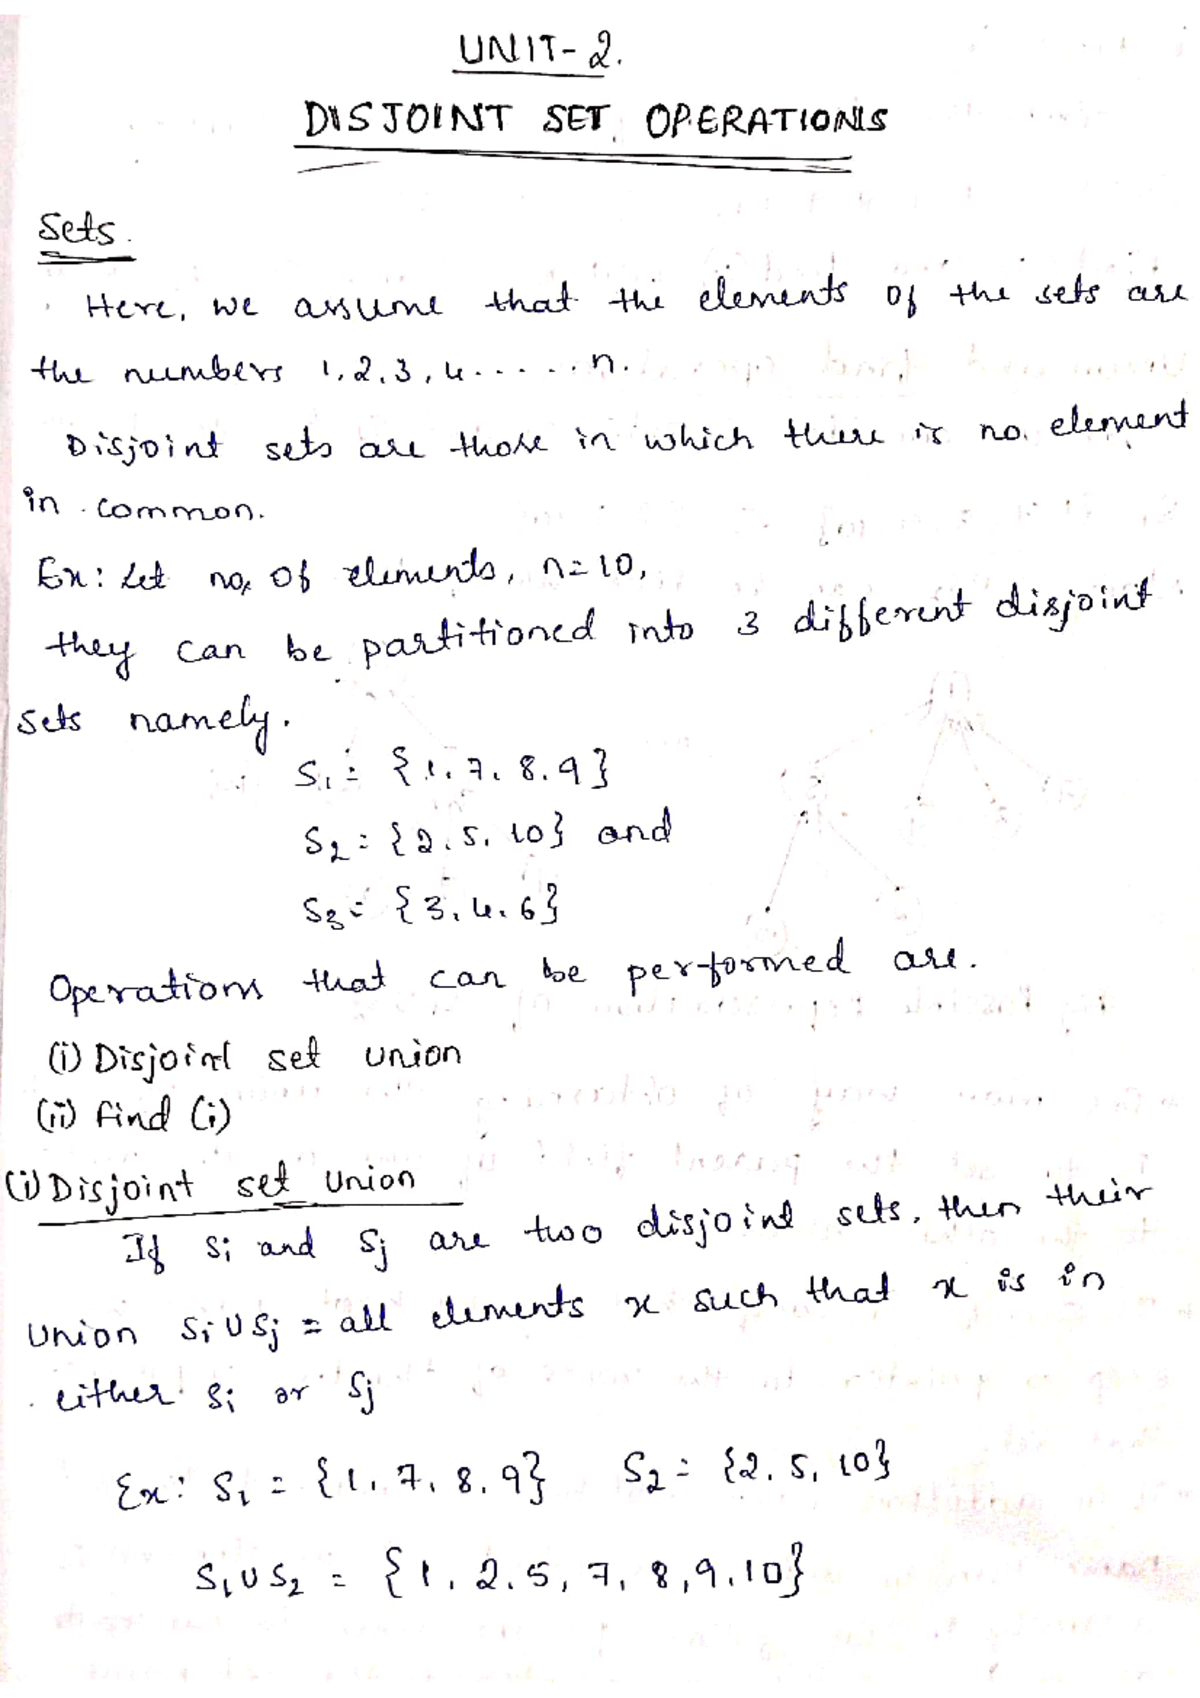 UNIT-2.
DISJOINT SET OPERATIONS
Sets.
Here, we assume that the elements of the sets are
the numbers 1,2,3,4.....n.
Disjoint sets are those in which there is no element
in common.
Ex: Let no. of elements, n=10,
they can be partitioned into 3 different disjoint
sets namely.
S₁ = {1,7,8,9}
S₂ = {2,5,10} and
S₃ = {3,4,6}
Operations that can be performed are.
(i) Disjoint set union
(ii) Find (i)
(i) Disjoint set union
If Si and Sj are two disjoint sets, then their
union Si ∪ Sj = all elements x such that x is in
either Si or Sj
Ex: S₁ = {1,7,8,9} S₂ = {2,5,10}
S₁ ∪ S₂ = {1,2,5,7,8,9,10}